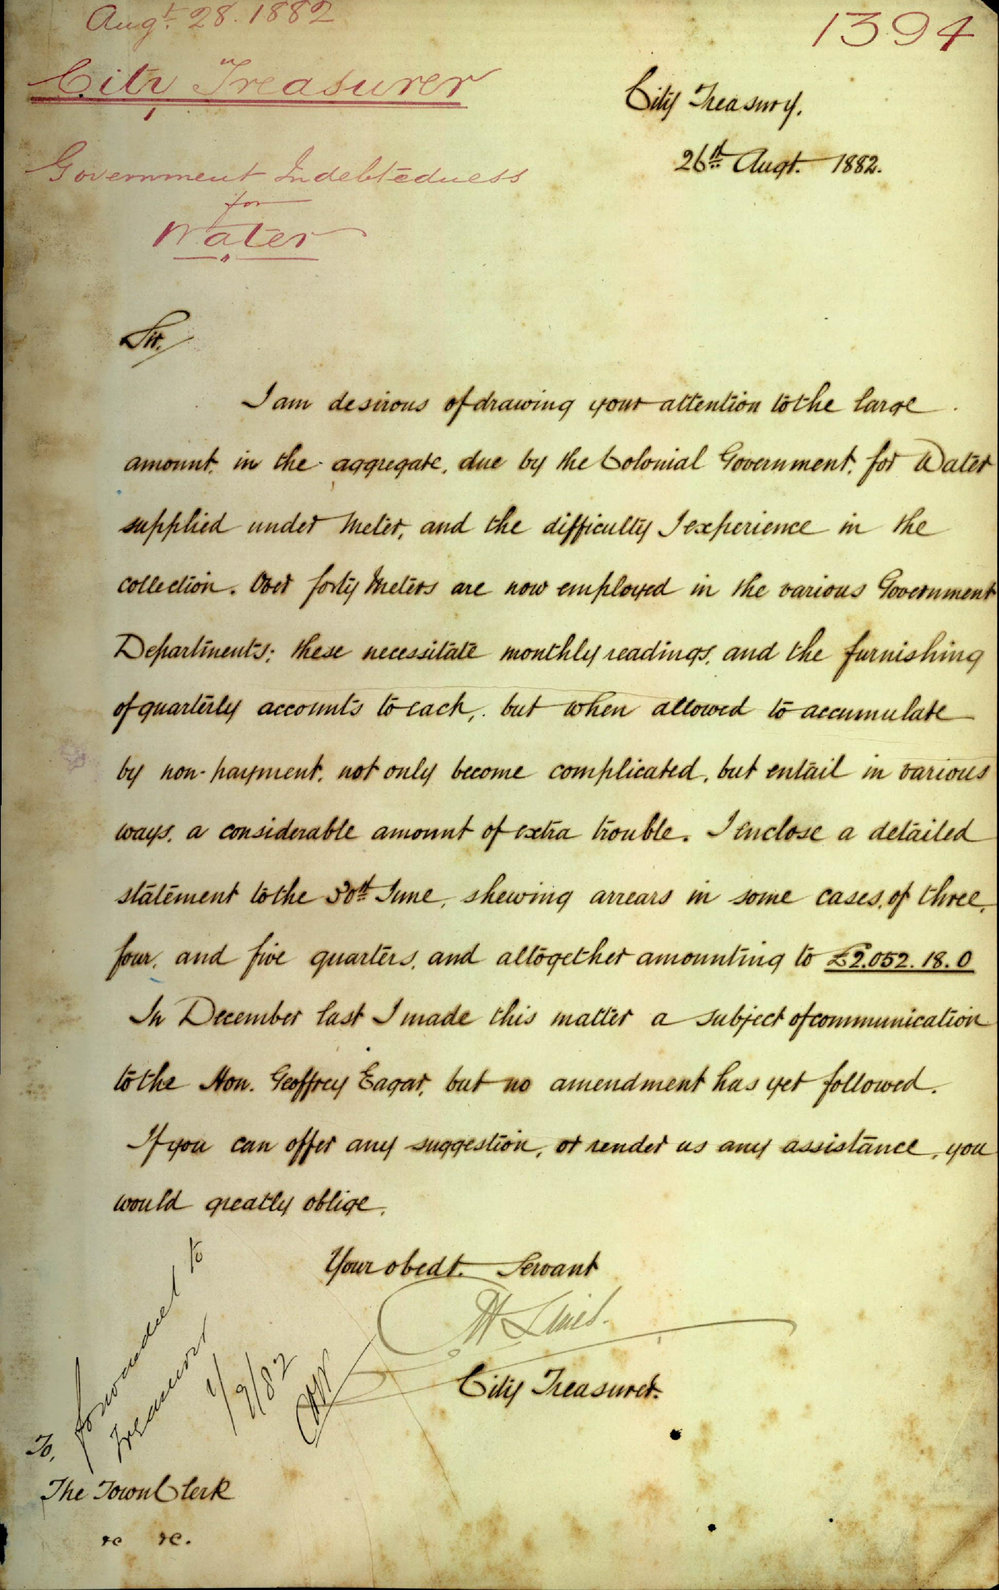 Augt. 28. 1882
1394
City Treasurer
Government Indebtedness
for
Water
City Treasury,
26th Augt. 1882.
Sir,
I am desirous of drawing your attention to the large
amount, in the aggregate, due by the Colonial Government, for Water
supplied under Meter, and the difficulty I experience in the
collection. Over forty Meters are now employed in the various Government
Departments; these necessitate monthly readings, and the furnishing
of quarterly accounts to each, but when allowed to accumulate
by non-payment, not only become complicated, but entail in various
ways, a considerable amount of extra trouble. I enclose a detailed
statement to the 30th June, shewing arrears in some cases, of three,
four, and five quarters, and altogether amounting to £2,052. 18. 0
In December last I made this matter a subject of communication
to the Hon. Geoffrey Eagar, but no amendment has yet followed.
If you can offer any suggestion, or render us any assistance, you
would greatly oblige,
Your obedt. Servant
City Treasurer.
forwarded to
Treasurer
1/9/82
To,
The Town Clerk
&c &c.